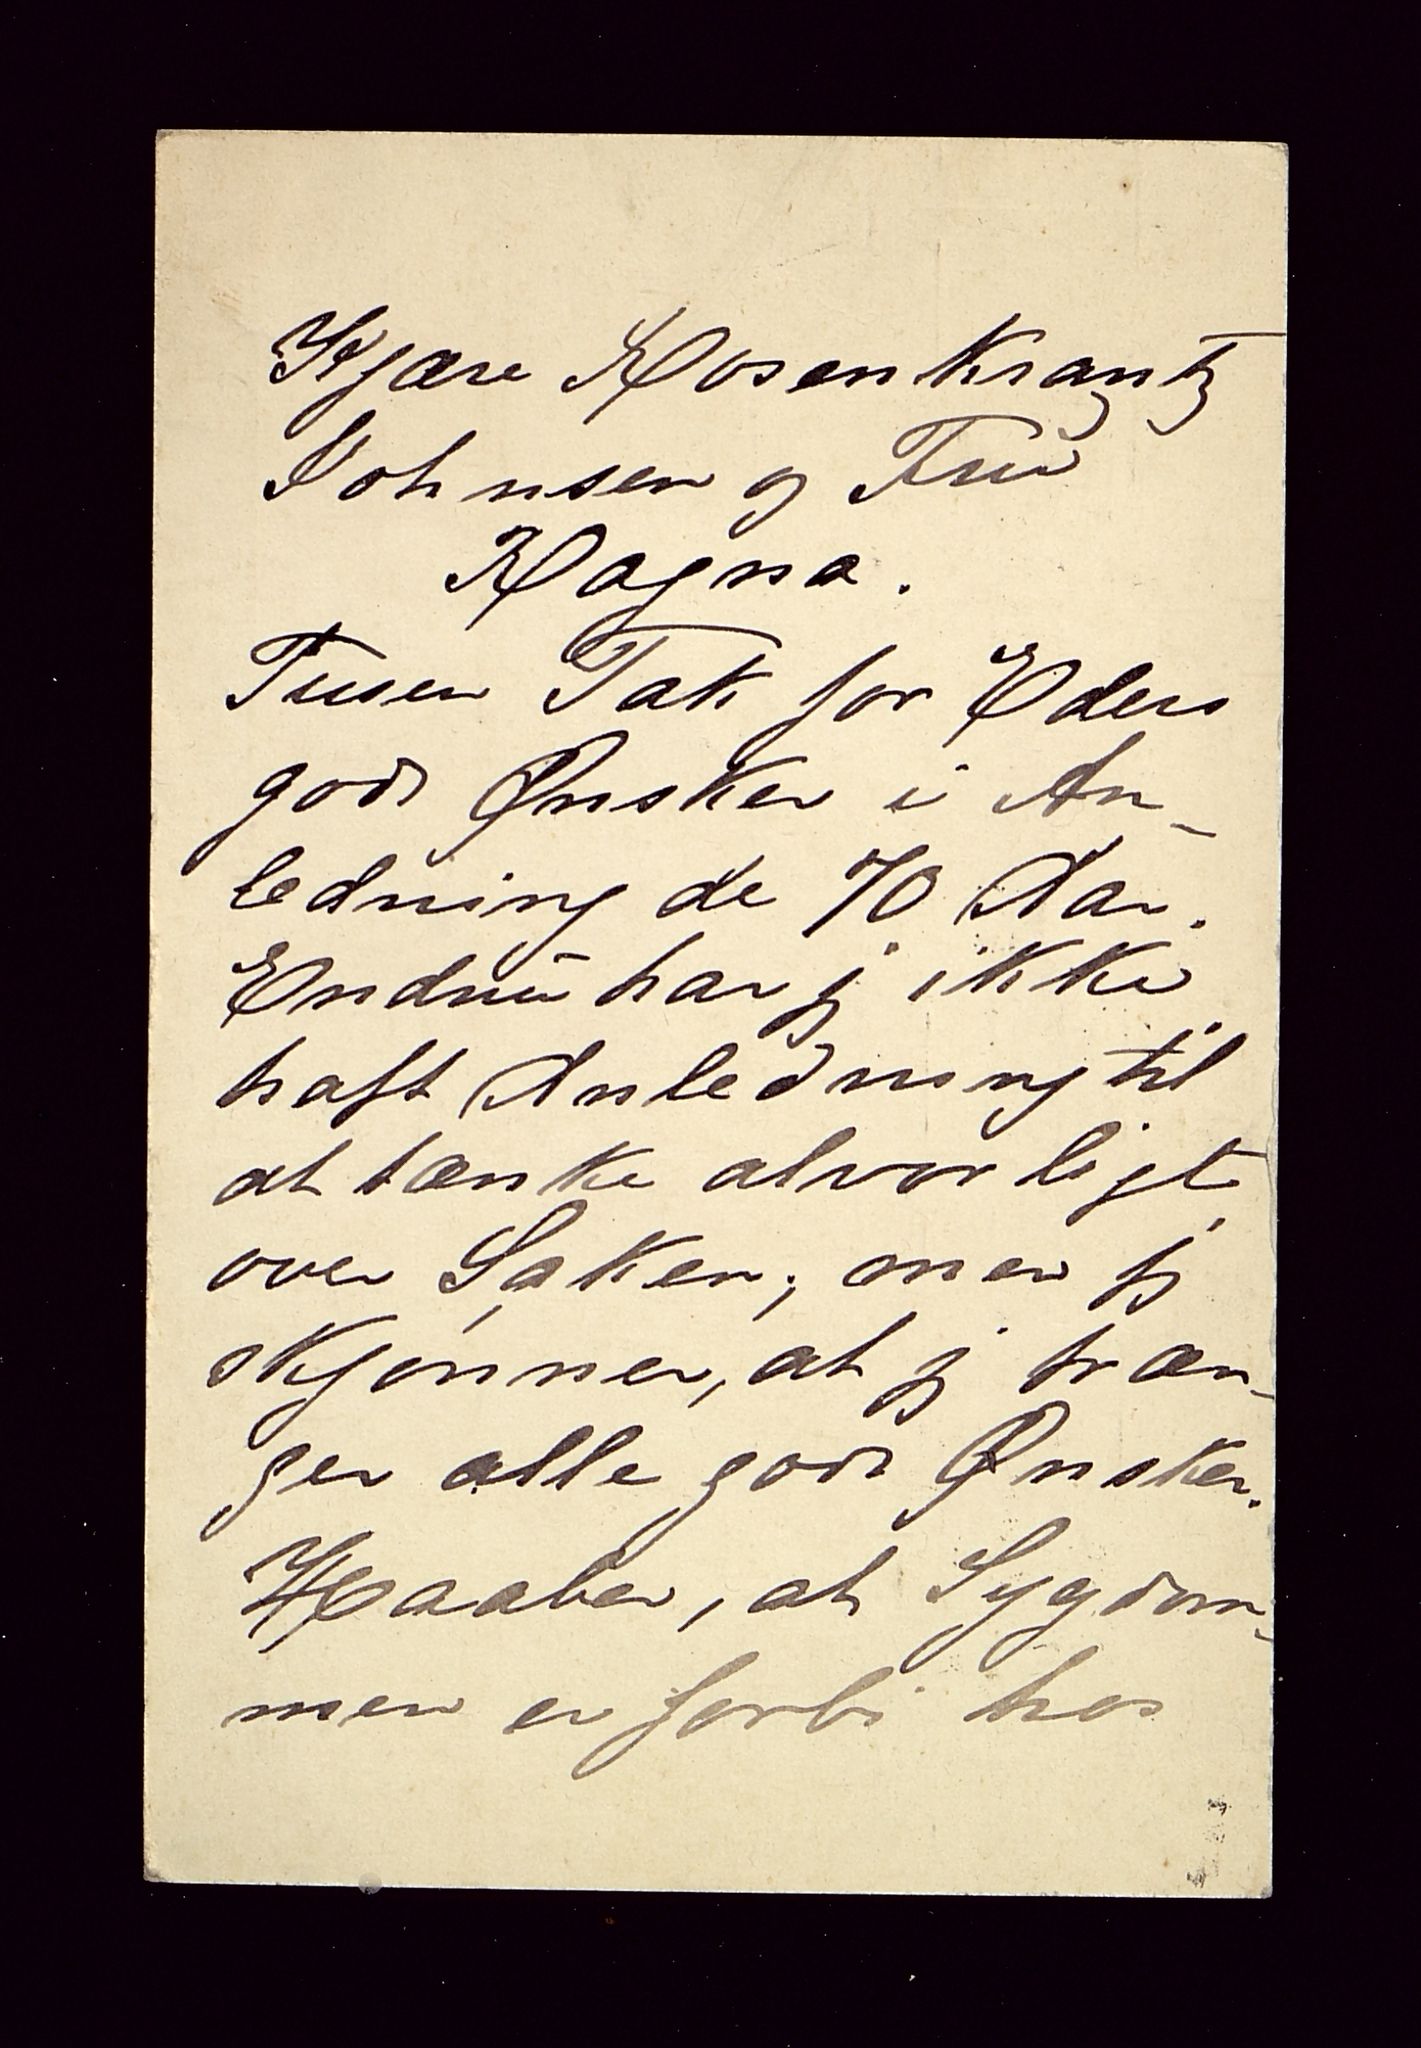 Kjære Rosenkrantz
Johnsen og Fru
Ragna.
Tusen Tak for Eders
gode Ønsker i An-
ledning de 70 Aar.
Endnu har jeg ikke
haft Anledning til
at tænke alvorligt
over Saken; men jeg
skjønner, at jeg træn-
ger alle gode Ønsker.
Haaber, at Sygdom-
men er forbi hos